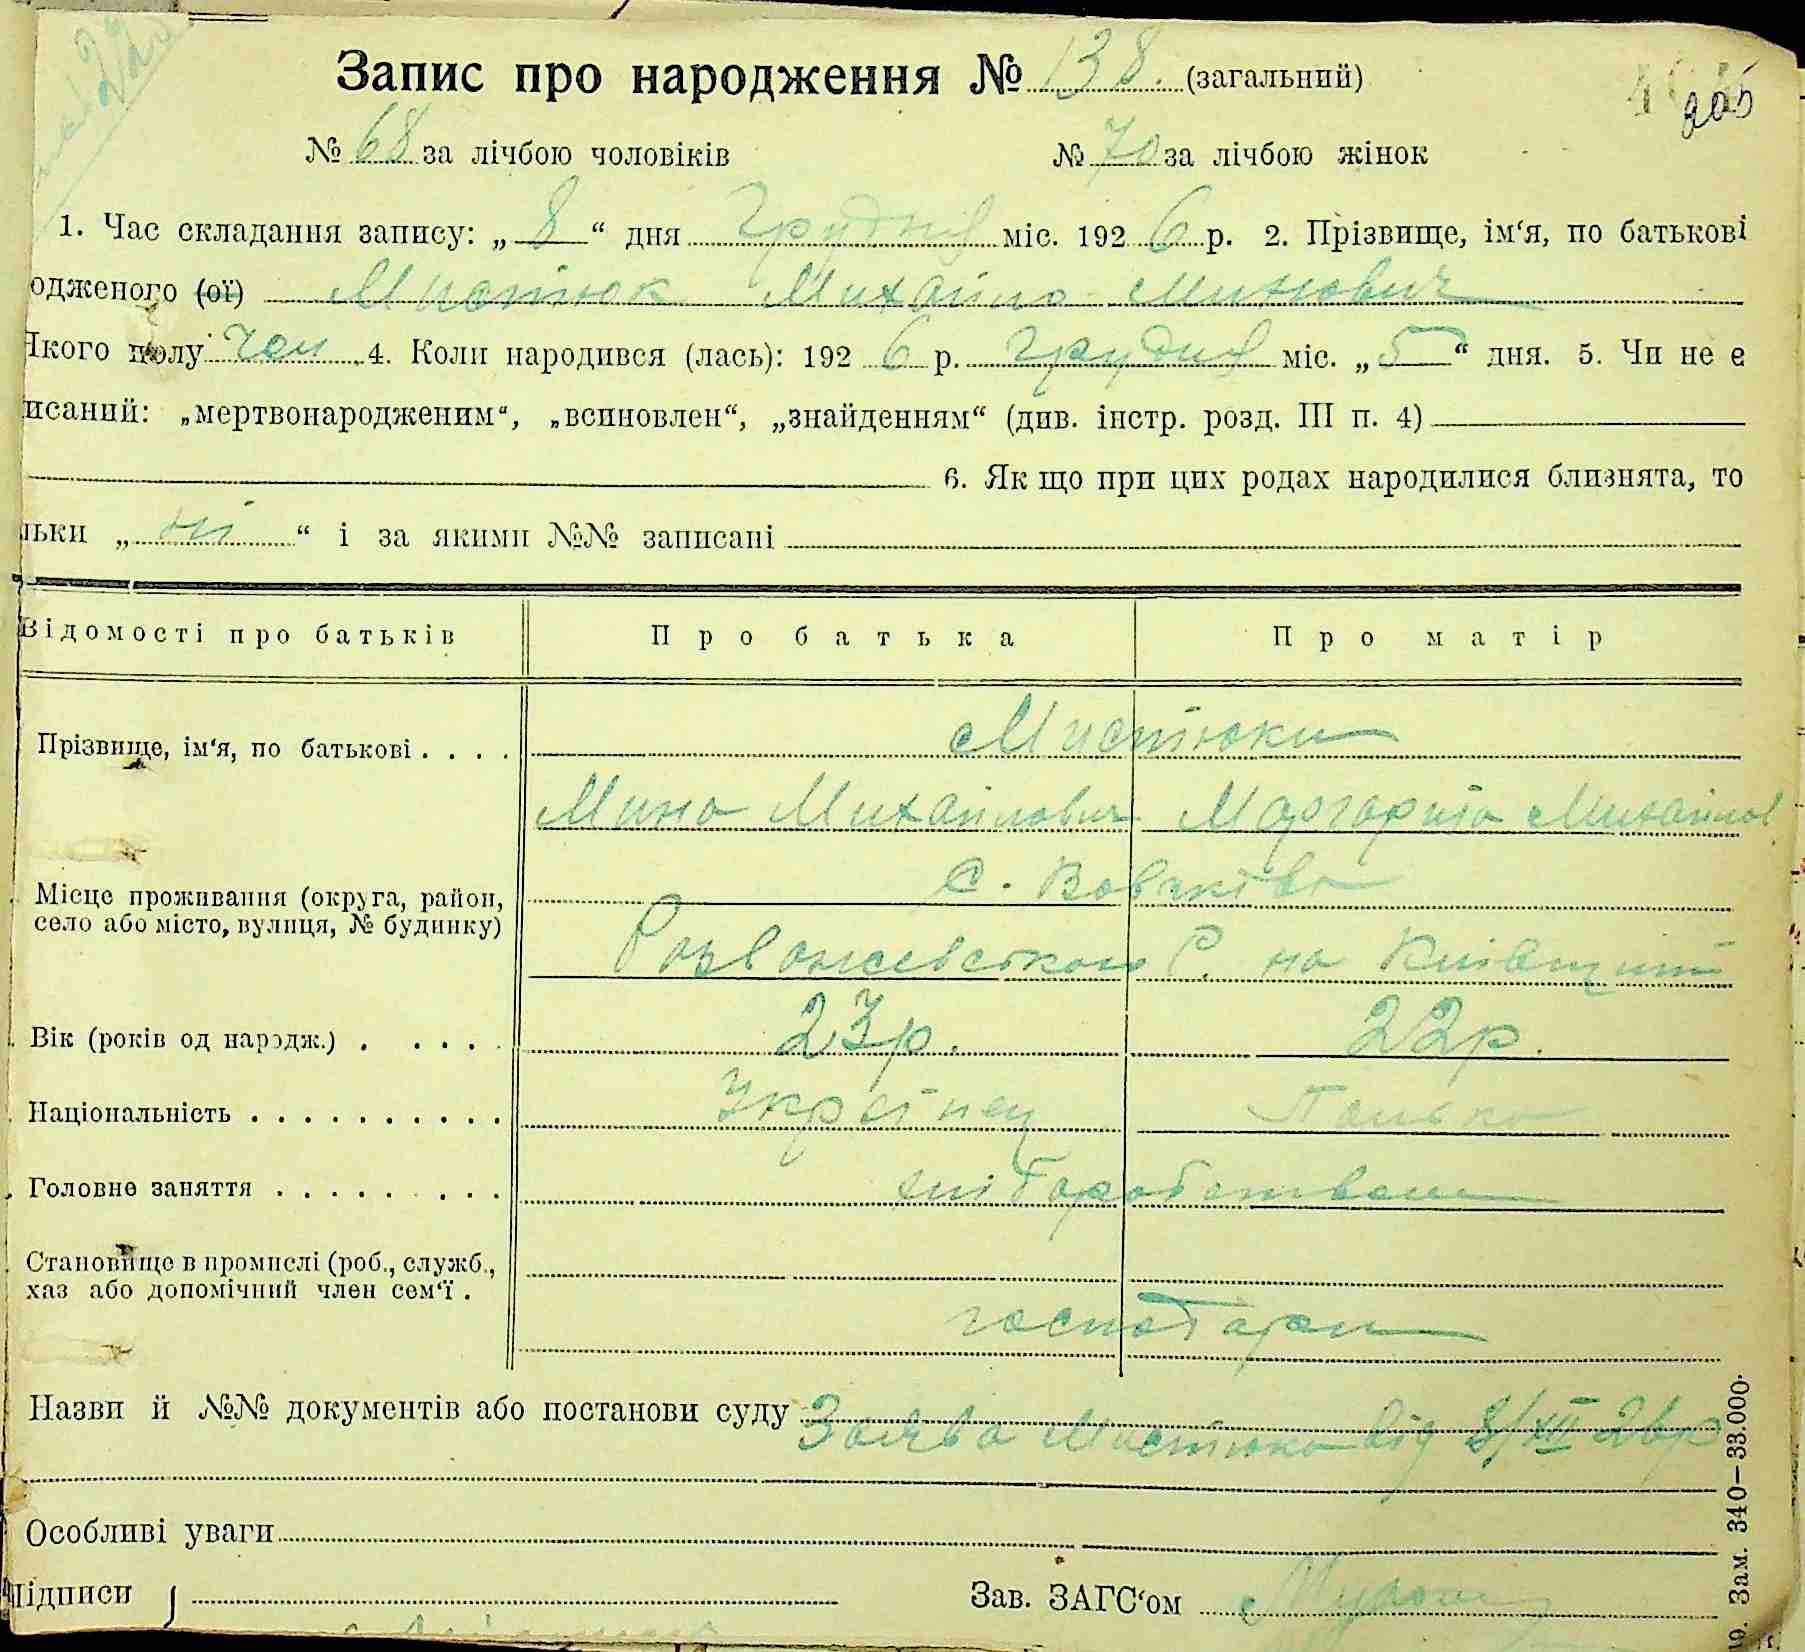 Запис про народження № 138. (загальний)
№ 68 за лічбою чоловіків № 70 за лічбою жінок
1. Час складання запису: „ 8 “ дня Грудня міс. 192 6 р. 2. Прізвище, ім‘я, по батькові
одженого (ої) Мистюк Михайло Минович
Якого полу чол 4. Коли народився (лась): 192 6 р. Грудня міс. „ 5 “ дня. 5. Чи не є
исаний: „мертвонародженим“, „всиновлен“, „знайденням“ (див. інстр. розд. III п. 4)
6. Як що при цих родах народилися близнята, то
льки „ ні “ і за якими №№ записані
Відомості про батьків Про батька Про матір
Прізвище, ім‘я, по батькові . . . . Мистюки
Мина Михайлович Маргарита Михайлов
Місце проживання (округа, район, с. Вовчків
село або місто, вулиця, № будинку) Розважевського Р. на Київщині
Вік (років од народж.) . . . . . 23р. 22р.
Національність . . . . . . . . . . Українец Полька
Головне заняття . . . . . . . . . хліборобством
Становище в промислі (роб., служб.,
хаз або допомічний член сем‘ї . господари
Назви й №№ документів або постанови суду Заява Мистюка від 8/XII 26р
Особливі уваги
Підписи Зав. ЗАГС‘ом
9. Зам. 340—33.000.